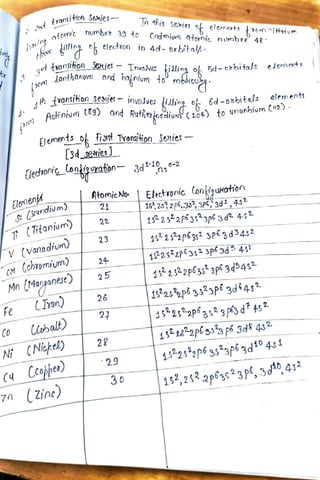 2nd transition series:- In this series of elements from Yttrium
having atomic number 39 to Cadmium atomic number 48.
filling of electron in 4d-orbitals.
3rd transition series - Involves filling of 5d-orbitals elements
from Lanthanum and hafnium to mercury.
4th transition series - involves filling of 6d-orbitals elements
from Actinium (89) and Rutherfordium (104) to ununbium (112).
Elements of First Transition Series -
[3d series]
Electronic Configuration - 3d1-10, ns0-2
Elements Atomic No Electronic Configuration
Sc (Scandium) 21 1s2, 2s2, 2p6, 3s2, 3p6, 3d1, 4s2
Ti (Titanium) 22 1s2 2s2 2p6 3s2 3p6 3d2 4s2
V (Vanadium) 23 1s2 2s2 2p6 3s2 3p6 3d3 4s2
Cr (Chromium) 24 1s2 2s2 2p6 3s2 3p6 3d5 4s1
Mn (Manganese) 25 1s2 2s2 2p6 3s2 3p6 3d5 4s2
Fe (Iron) 26 1s2 2s2 2p6 3s2 3p6 3d6 4s2
Co (Cobalt) 27 1s2 2s2 2p6 3s2 3p6 3d7 4s2
Ni (Nickel) 28 1s2 2s2 2p6 3s2 3p6 3d8 4s2
Cu (Copper) 29 1s2 2s2 2p6 3s2 3p6 3d10 4s1
Zn (Zinc) 30 1s2, 2s2 2p6 3s2 3p6, 3d10, 4s2